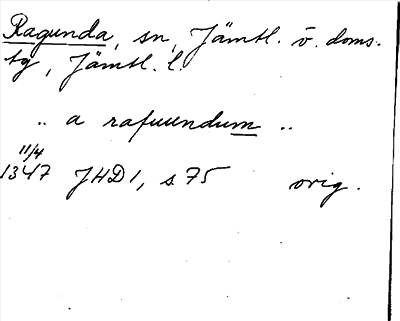 Ragunda, sn, Jämtl. ö. doms.
tg, Jämtl. l.
.. a rafuundum ..
11/4
1347 JHD 1, s 75 orig.